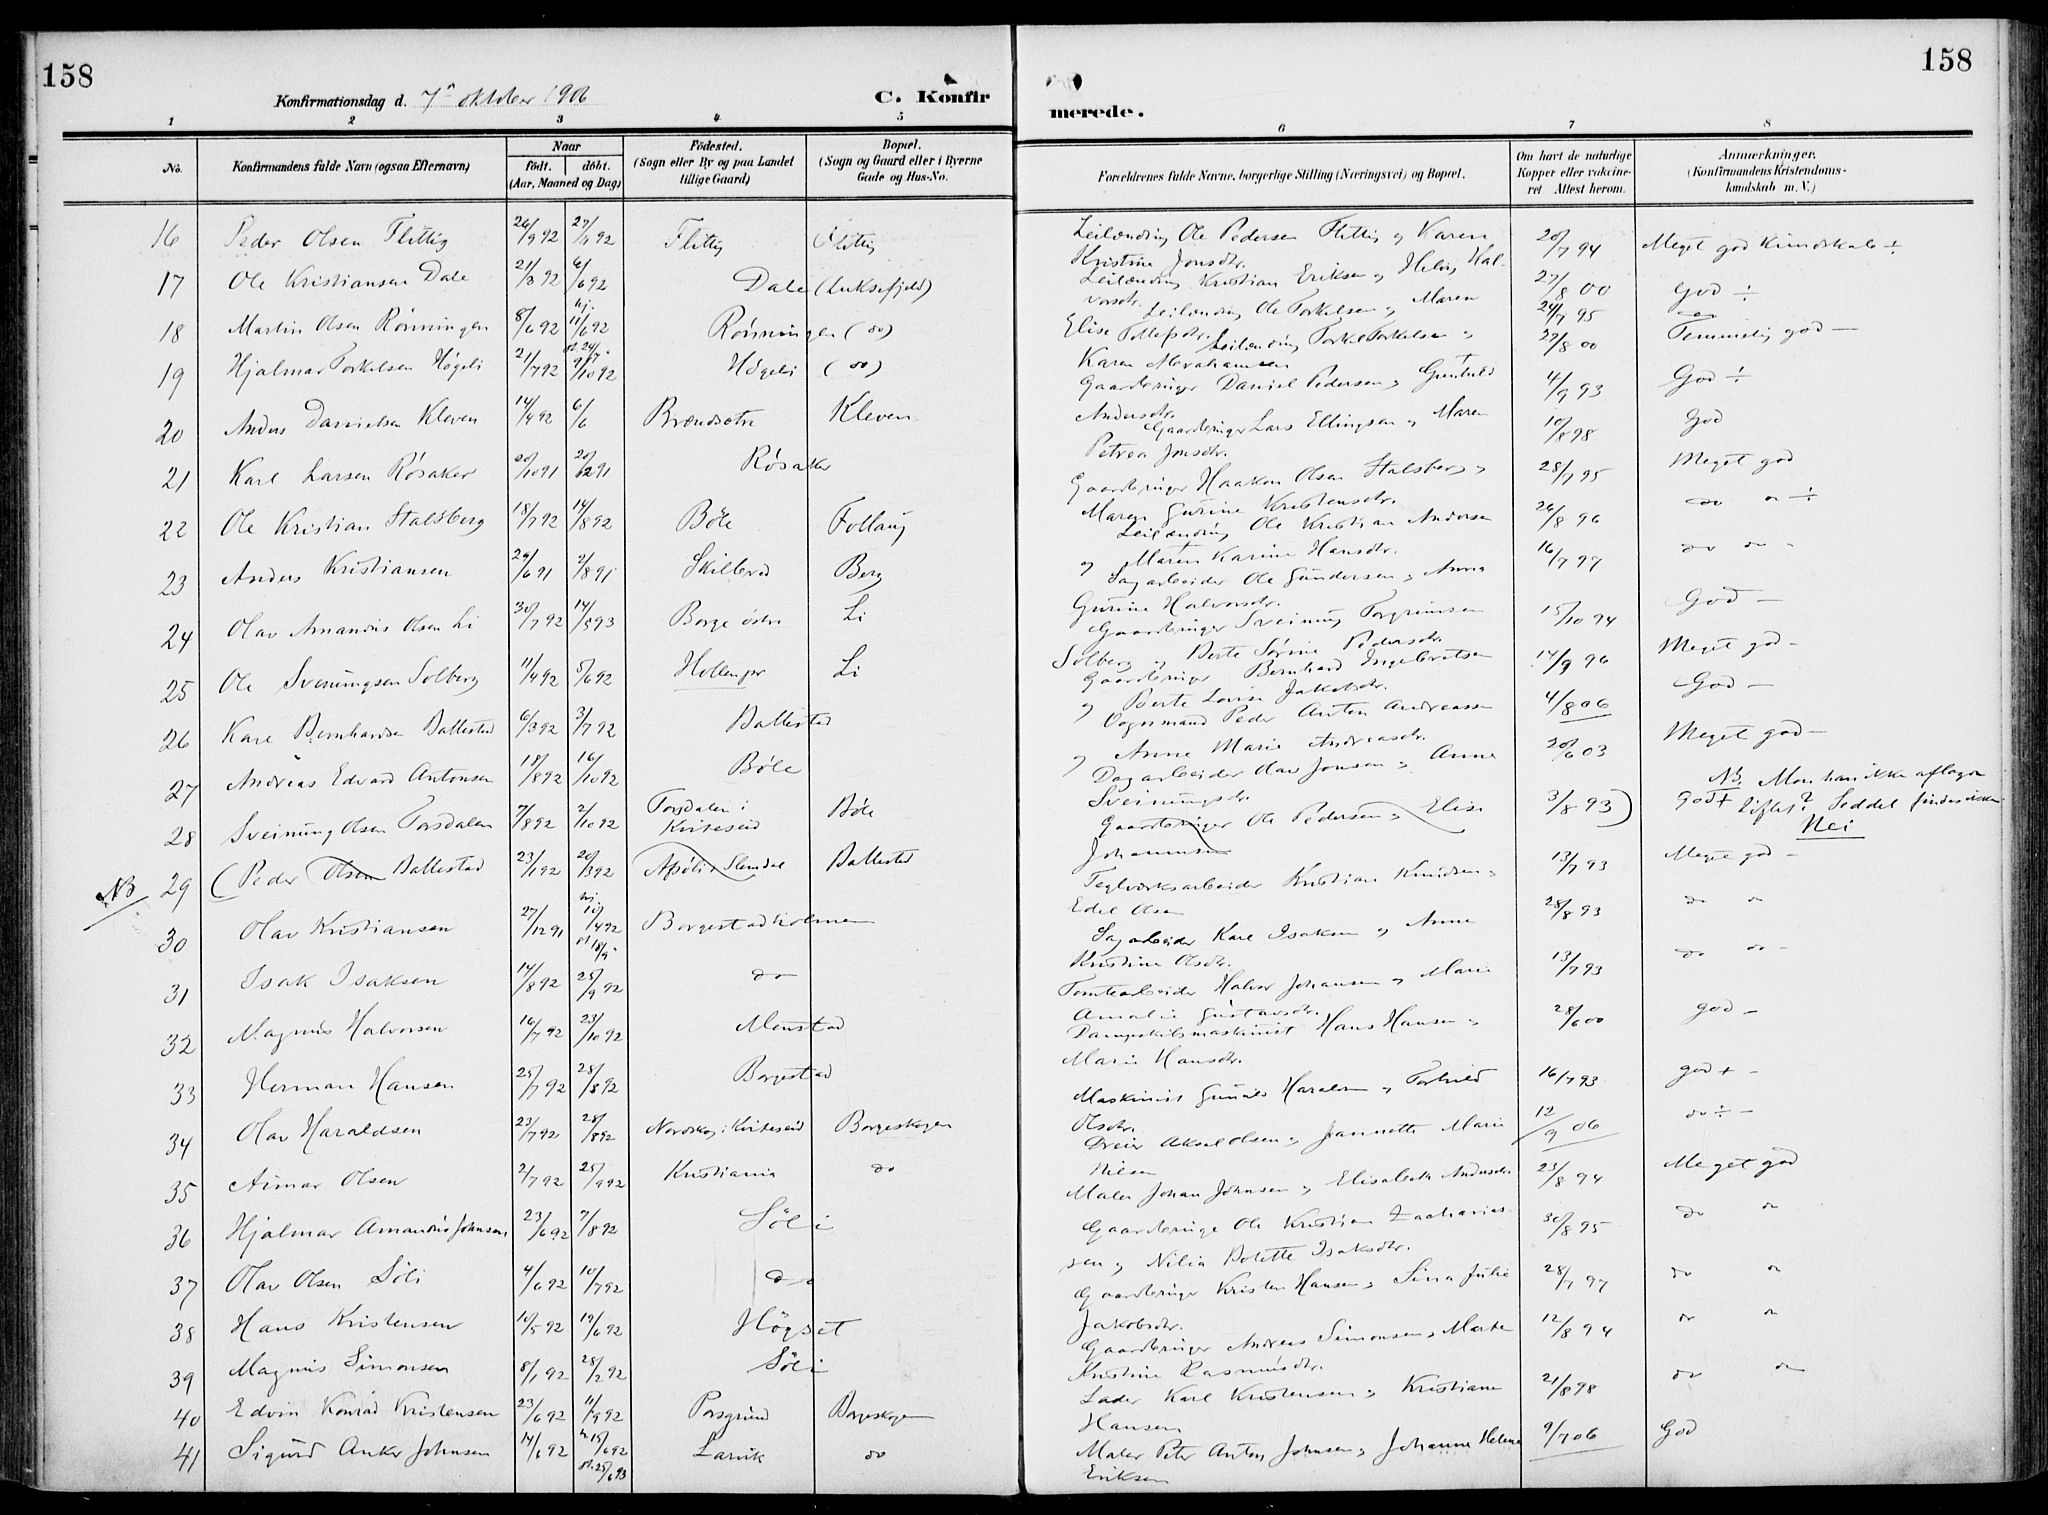 158
158
Konfirmationsdag d. 7de oktober 1906
C. Konfir
merede.
1 2 3 4 5 6 7 8
No.
Konfirmandens fulde Navn (ogsaa Efternavn)
Naar
födt. döbt.
(Aar, Maaned og Dag)
Födested.
(Sogn eller By og paa Landet
tillige Gaard)
Bopæl.
(Sogn og Gaard eller i Byerne
Gade og Hus-No.
Forældrenes fulde Navne, borgerlige Stilling (Næringsvei) og Bopæl.
Om havt de naturlige
Kopper eller vakcine-
ret Attest herom.
Anmærkninger.
(Konfirmandens Kristendoms-
kundskab m. V.)
16 Peder Olsen Flittig 26/9 92 27/11 92 Flittig Flittig Leilænding Ole Pedersen Flittig og Karen
Kristine Jonsdtr. 20/7 94 Meget god Kundskab ÷
17 Ole Kristiansen Dale 21/3 92 6/6 92 Dale (Luksefjeld) Leilænding Kristian Eriksen og Helvig Hal-
vorsdr. 27/8 00 God ÷
18 Martin Olsen Rönningen 8/6 92 hj. 11/6 92 Rönningen (do) Leilænding Ole Torkelsen og Maren
Elise Tollefsdr. 24/7 95 Temmelig god —
19 Hjalmar Torkelsen Högeli 21/7 92 9/10 92 Högeli (do) Leilænding Torkel Torkelsen og
Karen Abrahamsen 27/8 00 God ÷
20 Anders Danielsen Kleven 14/4 92 6/6 Brændsætre Kleven Gaardbruger Daniel Pedersen og Gunhild
Andersdr. 4/9 93 God
21 Karl Larsen Rösaker 20/10 91 20/12 91 Rösaker Gaardbruger Lars Ellingsen og Maren
Petrea Jonsdr. 10/8 98 Meget god
22 Ole Kristian Stalsberg 18/7 92 14/8 92 Böle Follaug Gaardbruger Haakon Olsen Stalsberg og
Maren Gurine Kristensdtr. 28/7 95 do do ÷
23 Anders Kristiansen 29/6 91 2/8 91 Skilbred Berg Leilænding Ole Kristian Andersen
og Maren Karine Hansdtr. 26/8 96 do do -
24 Olav Amandus Olsen Li 30/7 92 14/5 93 Borge östre Li Sagarbeider Ole Gundersen og Anna
Gurine Halvorsdtr. 16/7 97 God —
25 Ole Sveinungsen Solberg 11/4 92 5/6 92 Hollenpr Li Gaardbruger Sveinung Torgrimsen
Solberg og Berte Sörine Pedersdtr. 15/10 94 Meget god -
26 Karl Bernhardsen Ballestad 6/3 92 3/7 92 Ballestad Gaardbruger Bernhard Ingebretsen
og Berte Lovise Jakobsdr. 14/9 96 God —
27 Andreas Edvard Antonsen 18/8 92 16/10 92 Böle Vognmand Peder Anton Andreassen
og Anne Marie Andreasdr. 4/8 06 Meget god -
28 Sveinung Olsen Torsdalen 7/8 92 2/10 92 Torsdalen i
Kviteseid Böle Dagarbeider Olav Jonsen og Anne
Sveinungsdr. 20/6 03 god +
NB Mon han ikke aflagde
löftet? Seddel findes ikke
Nei
NB 29 (Peder Olsen Ballestad 23/1 92 20/3 92 Afsöli i Slemdal Ballestad Gaardbruger Ole Pedersen og Elise
Johannesen 3/8 93)
30 Olav Kristiansen 27/12 91 hj. 10/4 92 Borgestadholmen Teglverksarbeider Kristian Knudsen og
Edel Olsen 13/7 93 Meget god -
31 Isak Isaksen 14/8 92 25/9 92 do Sagarbeider Karl Isaksen og Anne
Kristine Olsdtr. 28/8 93 do do
32 Magnus Halvorsen 16/7 92 23/10 92 Menstad Tomtearbeider Halvor Johansen og Marie
Amalie Gustavsdr. 13/7 93 do do -
33 Herman Hansen 25/7 92 28/8 92 Borgestad Dampskibsmaskinist Hans Hansen og
Marie Hansdtr. 28/6 00 god -
34 Olav Haraldsen 23/7 92 28/8 92 Nordskog i Kviteseid Borgeskogen Maskinist Gunnar Haraldsen og Torhild
Olsdtr. 16/7 93 god + -
35 Aimar Olsen 2/7 92 25/9 92 Kristiania do Dreier Aksel Olsen og Jeannette Marie
Nilsen 12/9 06 do ÷ -
36 Hjalmar Amandus Johnsen 23/6 92 7/8 92 Söli Maler Johan Johnsen og Elisabeth Andersdr. 23/8 94 Meget god
37 Olav Olsen Söli 4/6 92 10/7 92 do Gaardbruger Ole Kristian Zacharias-
sen og Nilia Bolette Isaksdtr. 30/8 95 do do
38 Hans Kristensen 10/5 92 19/6 92 Högset Gaardbruger Kristen Hansen og Sina Julie
Jakobsdtr. 28/7 97 do do
39 Magnus Simonsen 8/1 92 28/2 92 Söli Gaardbruger Andreas Simonsen og Marte
Kristine Rasmusdtr. 12/8 94 do do
40 Edvin Konrad Kristensen 23/6 92 11/9 92 Porsgrund Borgeskogen Lader Karl Kristensen og Kristiane
Hansen 21/8 98 do do
41 Sigurd Anker Johnsen 14/6 92 15/6 92 st. 25/6 93 Larvik do Maler Peter Anton Johnsen og Johanne Helene
Eriksen 9/7 06 God